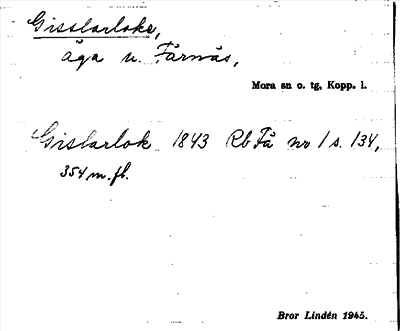 Gisslarloke,
äga n. Färnäs,
Mora sn o. tg, Kopp. l.
Gislarlok 1843 Rb Få nr 1 s. 134,
354 m. fl.
Bror Lindén 1945.